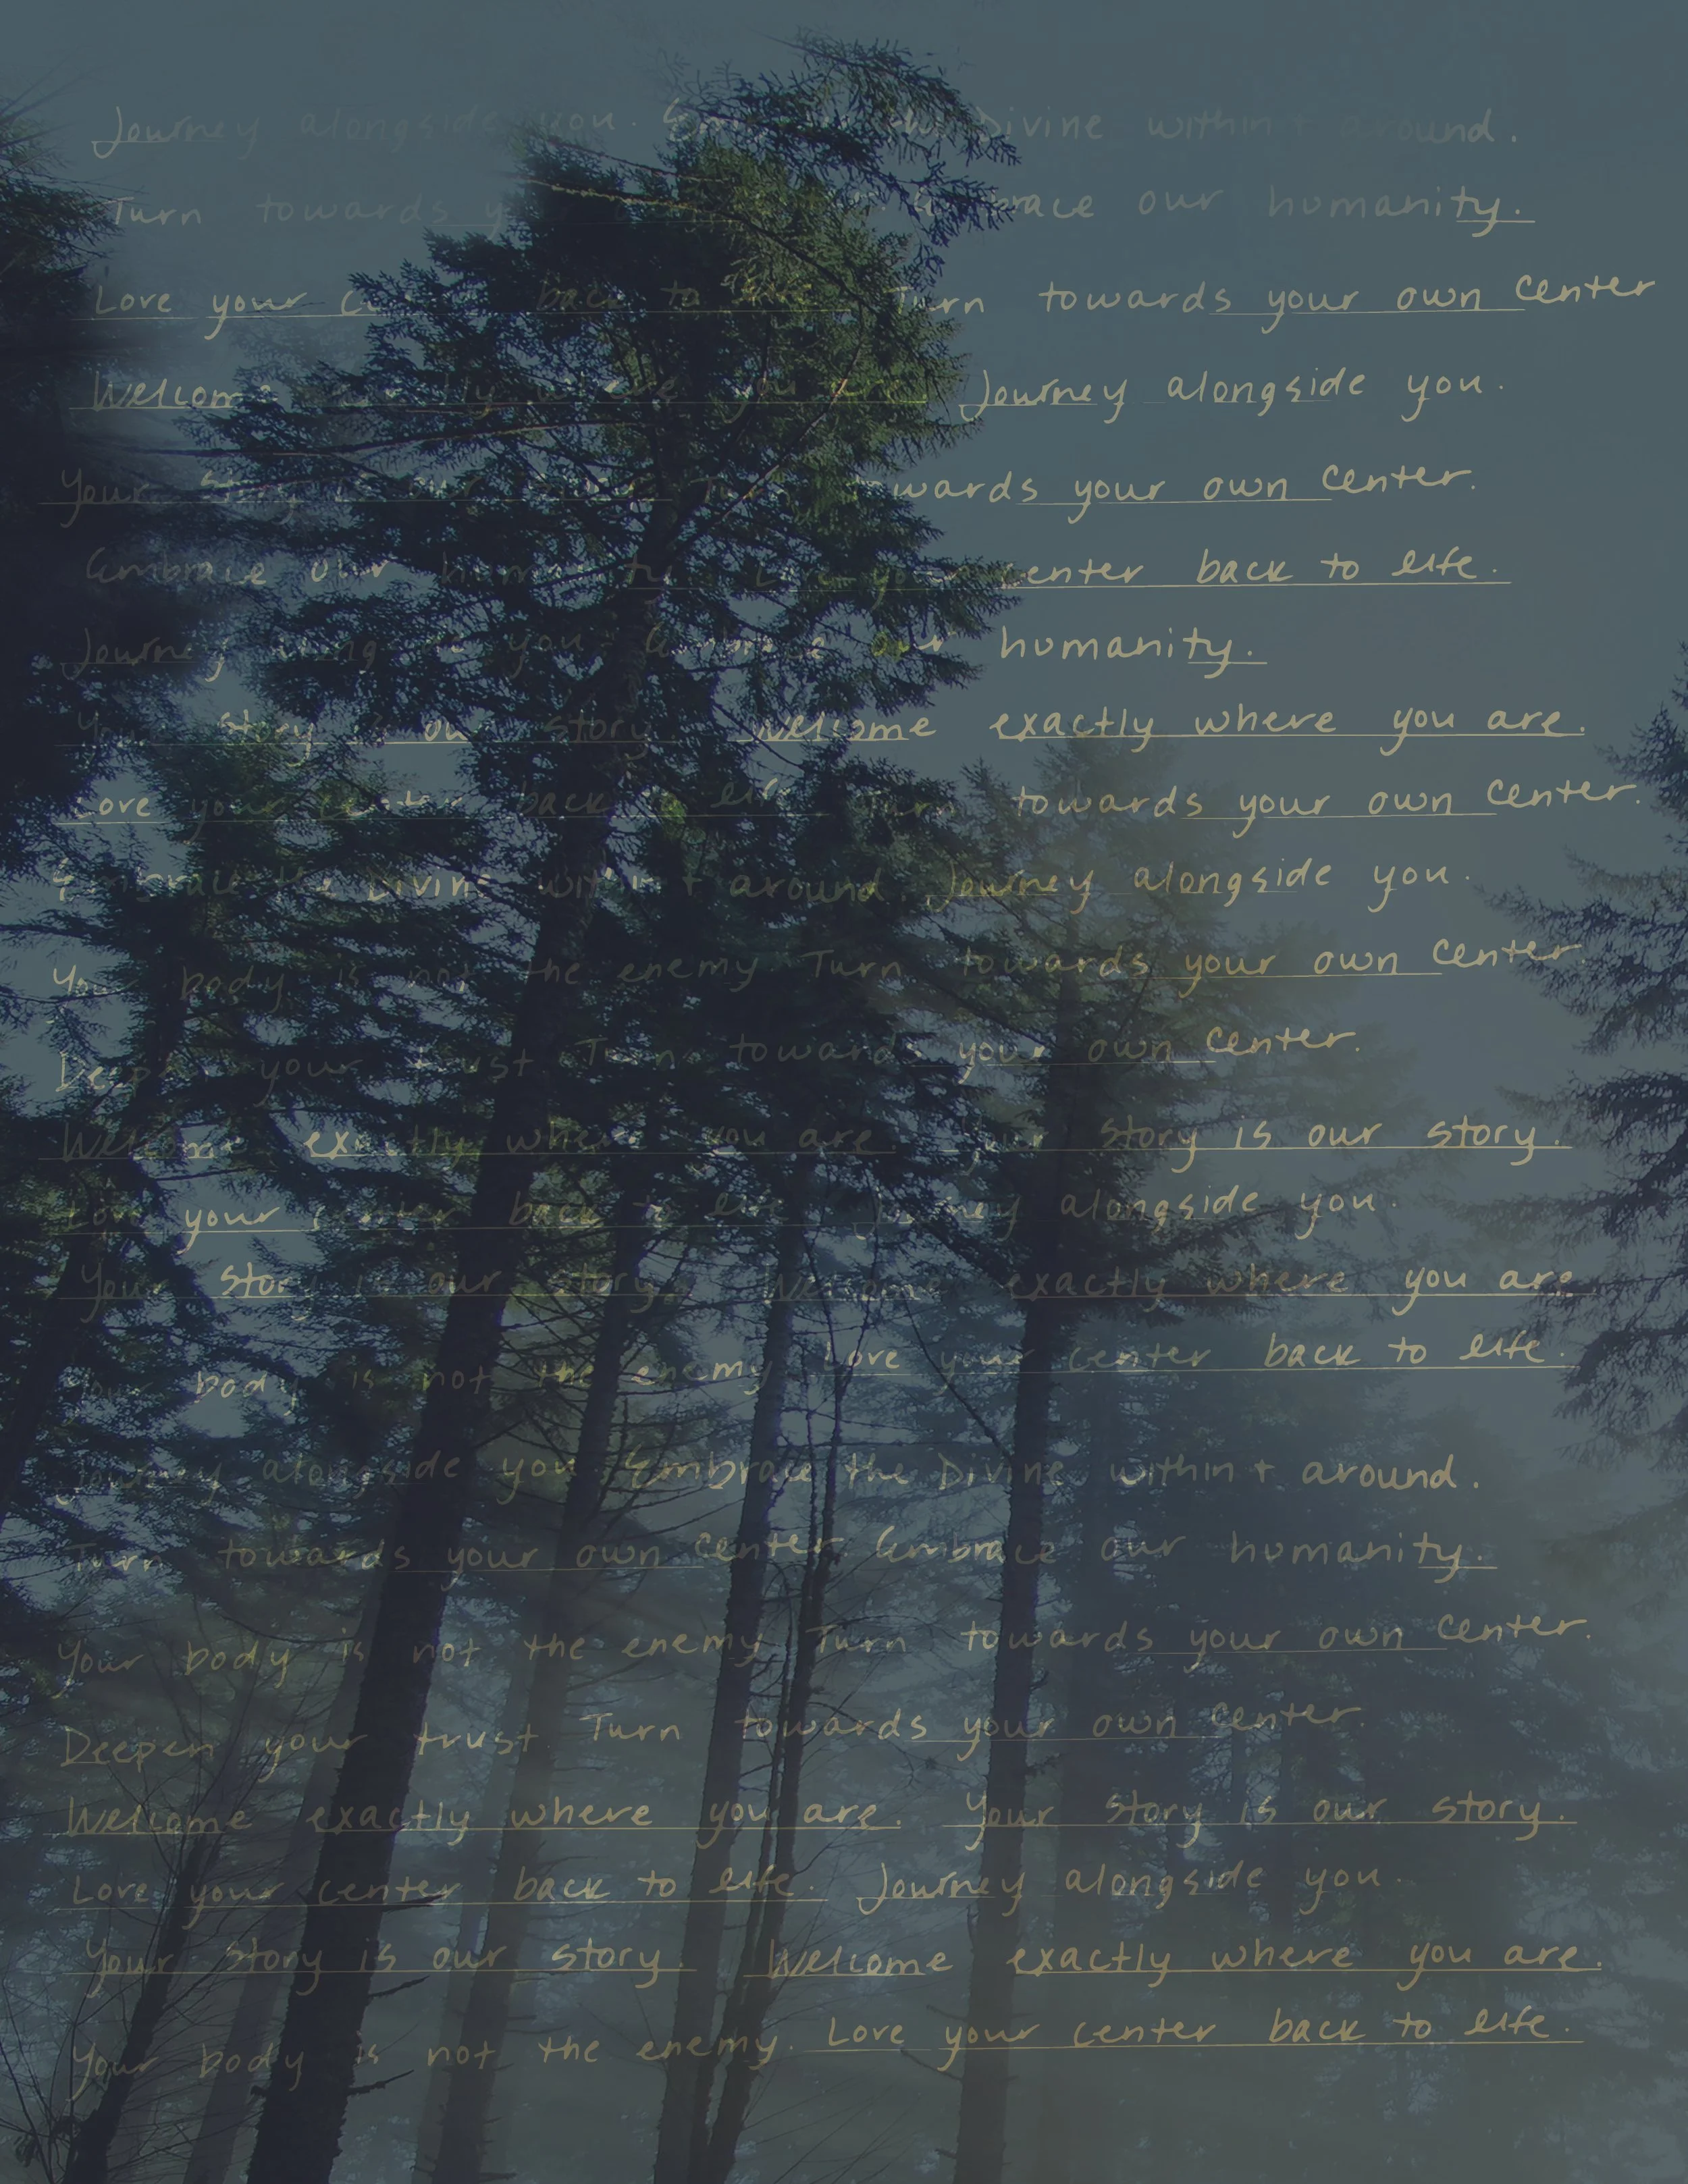 Journey alongside you. Divine within + around.
Turn towards our humanity.
Love your back to Turn towards your own center
Welcome where you are Journey alongside you.
Your Story our Turn towards your own center.
Embrace our humanity. Love your center back to life.
Journey along you. Embrace our humanity.
Your story is our story. Welcome exactly where you are.
Love your center back to life. Turn towards your own center.
Embrace the Divine within + around. Journey alongside you.
Your body is not the enemy Turn towards your own center.
Deepen your trust Turn towards your own center.
Welcome exactly where you are Your story is our story.
Love your center back to life Journey alongside you.
Your story is our story. Welcome exactly where you are
Your body is not the enemy Love your center back to life.
Journey alongside you Embrace the Divine within + around.
Turn towards your own center. Embrace our humanity.
Your body is not the enemy Turn towards your own center.
Deepen your trust. Turn towards your own center.
Welcome exactly where you are. Your story is our story.
Love your center back to life. Journey alongside you.
Your story is our story. Welcome exactly where you are.
Your body is not the enemy. Love your center back to life.